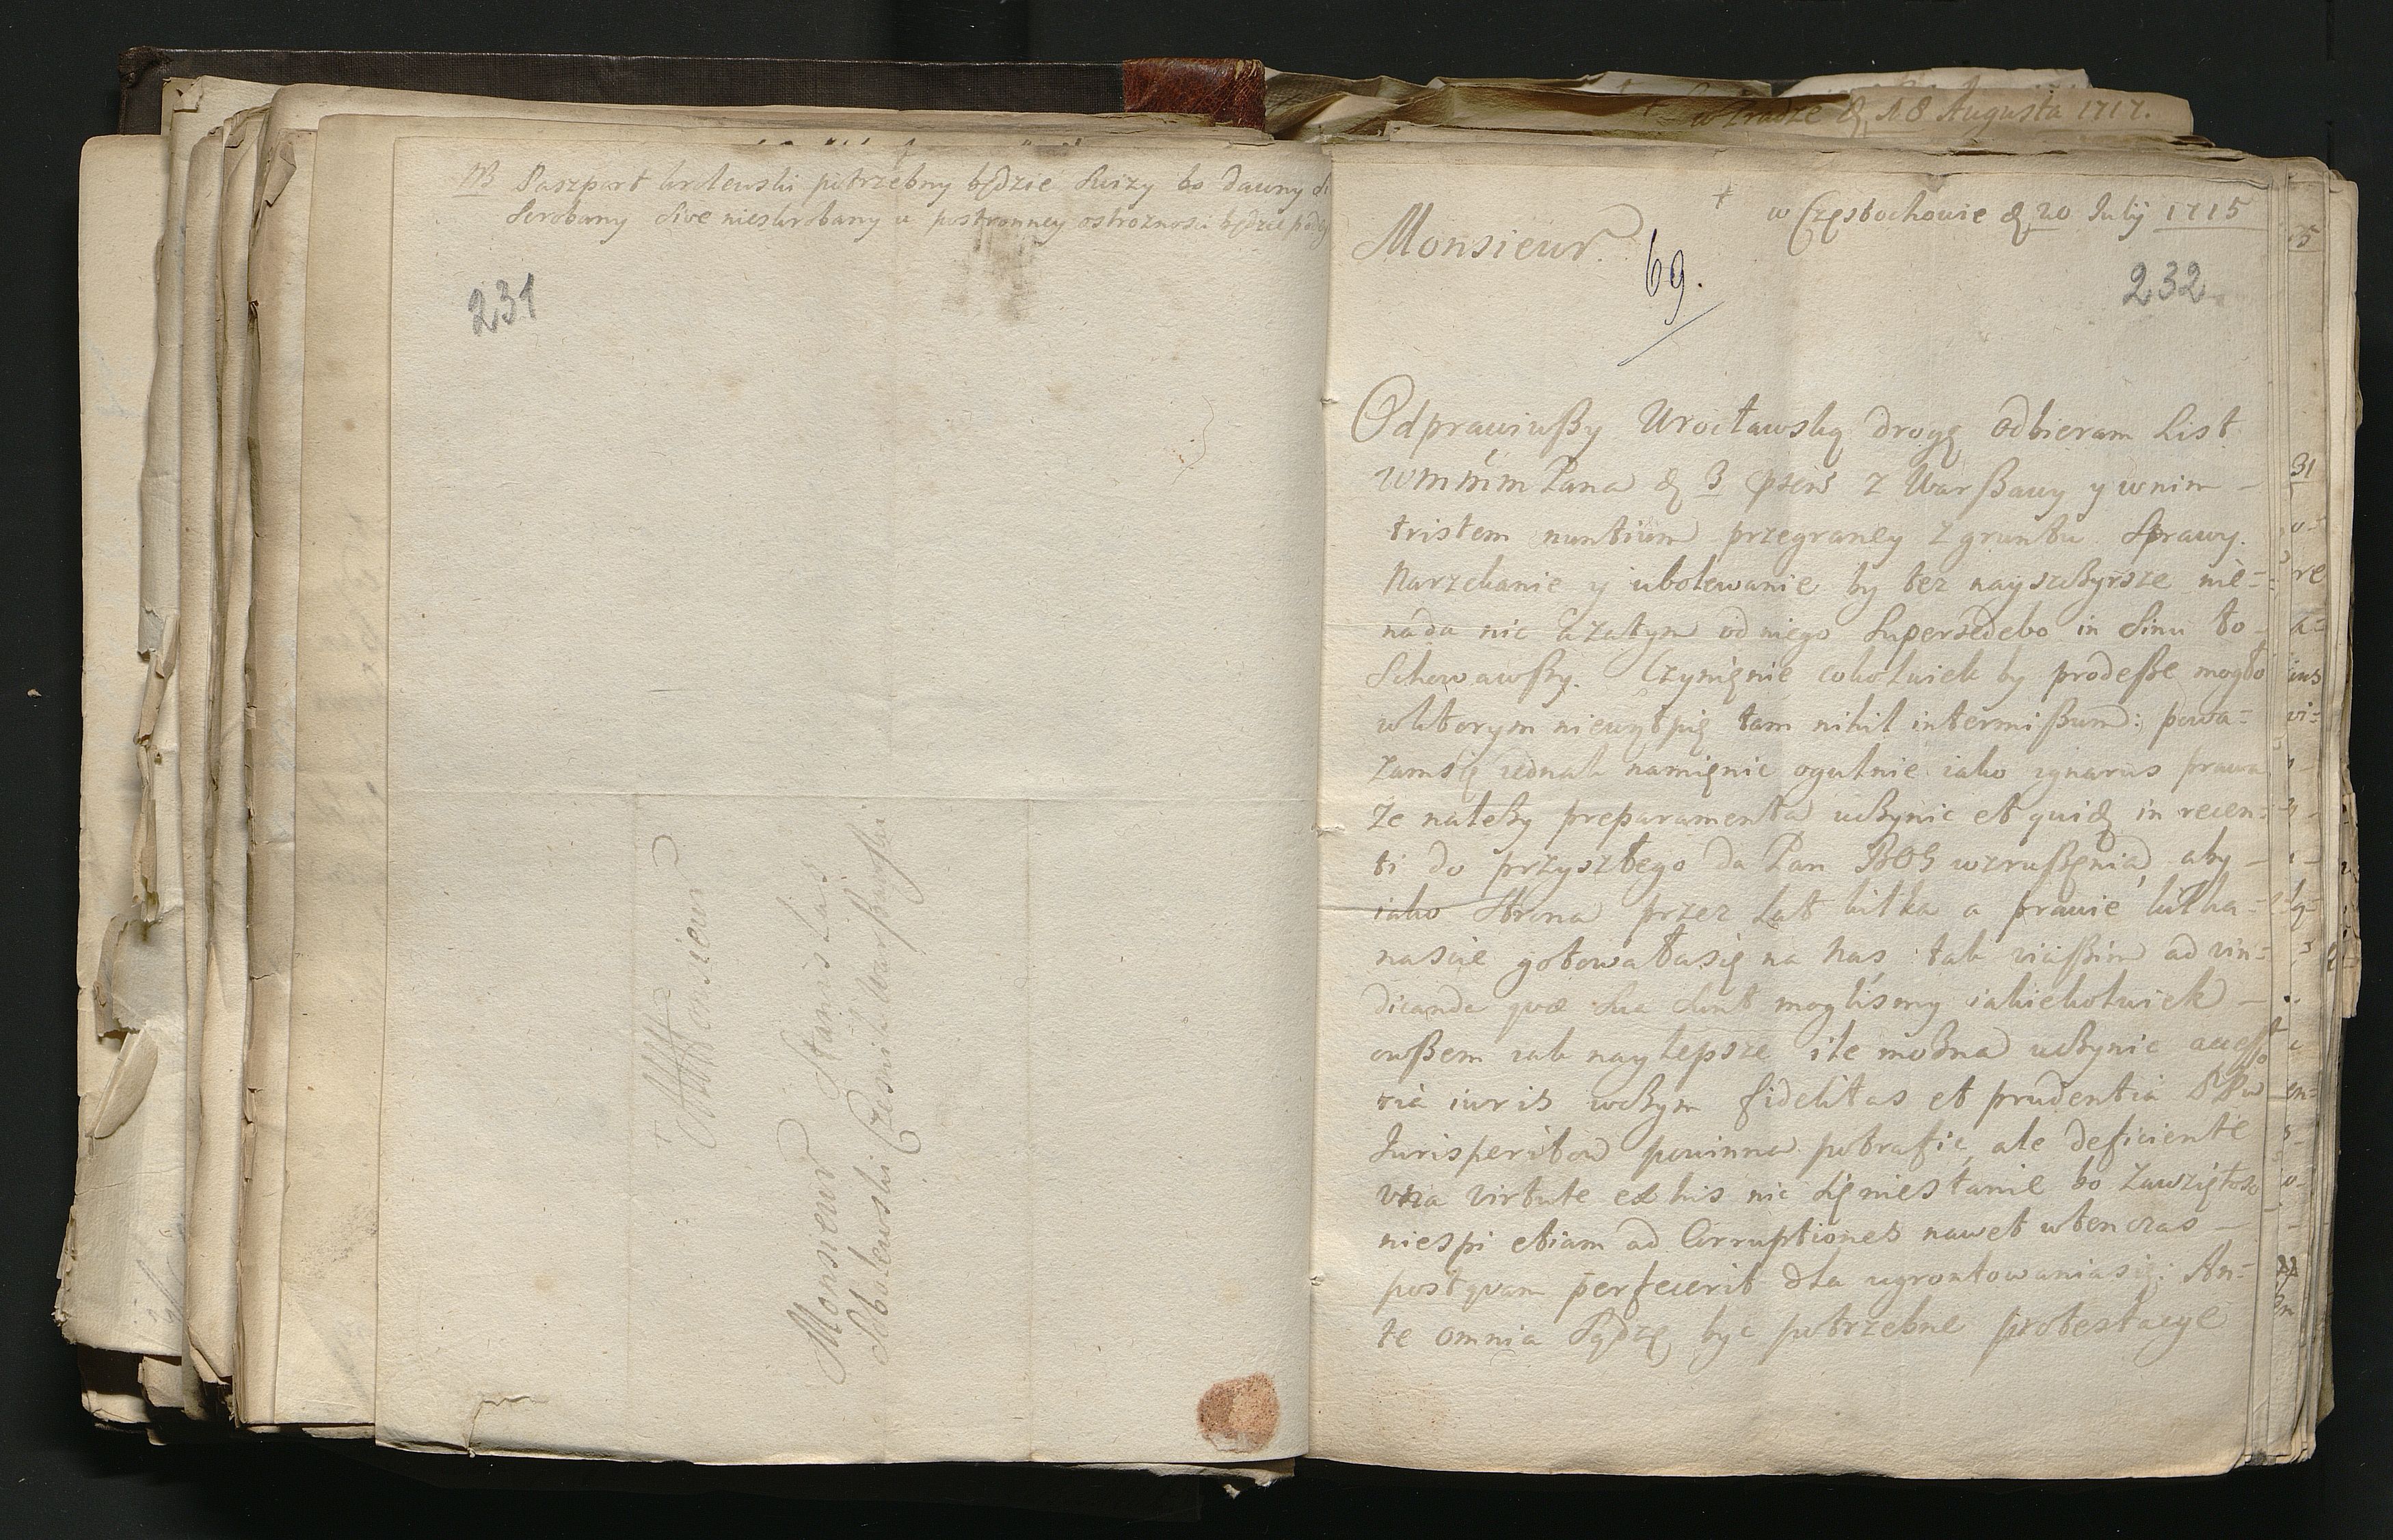 w Pradze d. 18 Augusta 1717.
NB Paszport krolewski potrzebny będzie swizy bo dawny
Skrobany sive nieskrobany u postronney ostroznosci będzie
231
Monsieur
Monsieur Stanislas
Sobolewski Czesnik Warßawski
† w Częstochowie d. 20 Julij 1715
Monsieur.
69.
232
Odprawiwßy Wrocławską drogę odbieram List
wmmm Pana d. 3 psens z Warßawy y wnim
tristem nuntium przegraney z gruntu Sprawy.
Narzekanie y ubolewanie by tez nayszczyrsze nie=
nada nic a zatym od niego Supersedebo in Sinu to
Schowawßy. Czynięnie cokolwiek by prodeße mogło
wktorym niewątpię tam nihil intermißum: powa=
zamsię iednak namięnic ogulnie iako ignarus prawa
ze nalezy preparamenta uczynic et quidem in recen=
ti do przyszłego da Pan BOG wzrußęnia, aby
iako Strona przez Lat kilka a prawie kilka=
nascie gotowałasię na nas, tak vicißim ad vin=
dicanda quæ Sua Sunt moglismy iakiekolwiek
owßem iak naylepsze ile mozna uczynic acceßo
ria iuris wczym fidelitas et prudentia PPw
Jurisperitow powinna potrafic, ale deficiente
una virtute ex his nic się niestanie bo Zawziętosc
niespi etiam ad Corruptiones nawet wtenczas
postquam perfecerit dla ugrontowaniasię. An=
te omnia Sądzę byc potrzebne protestacye